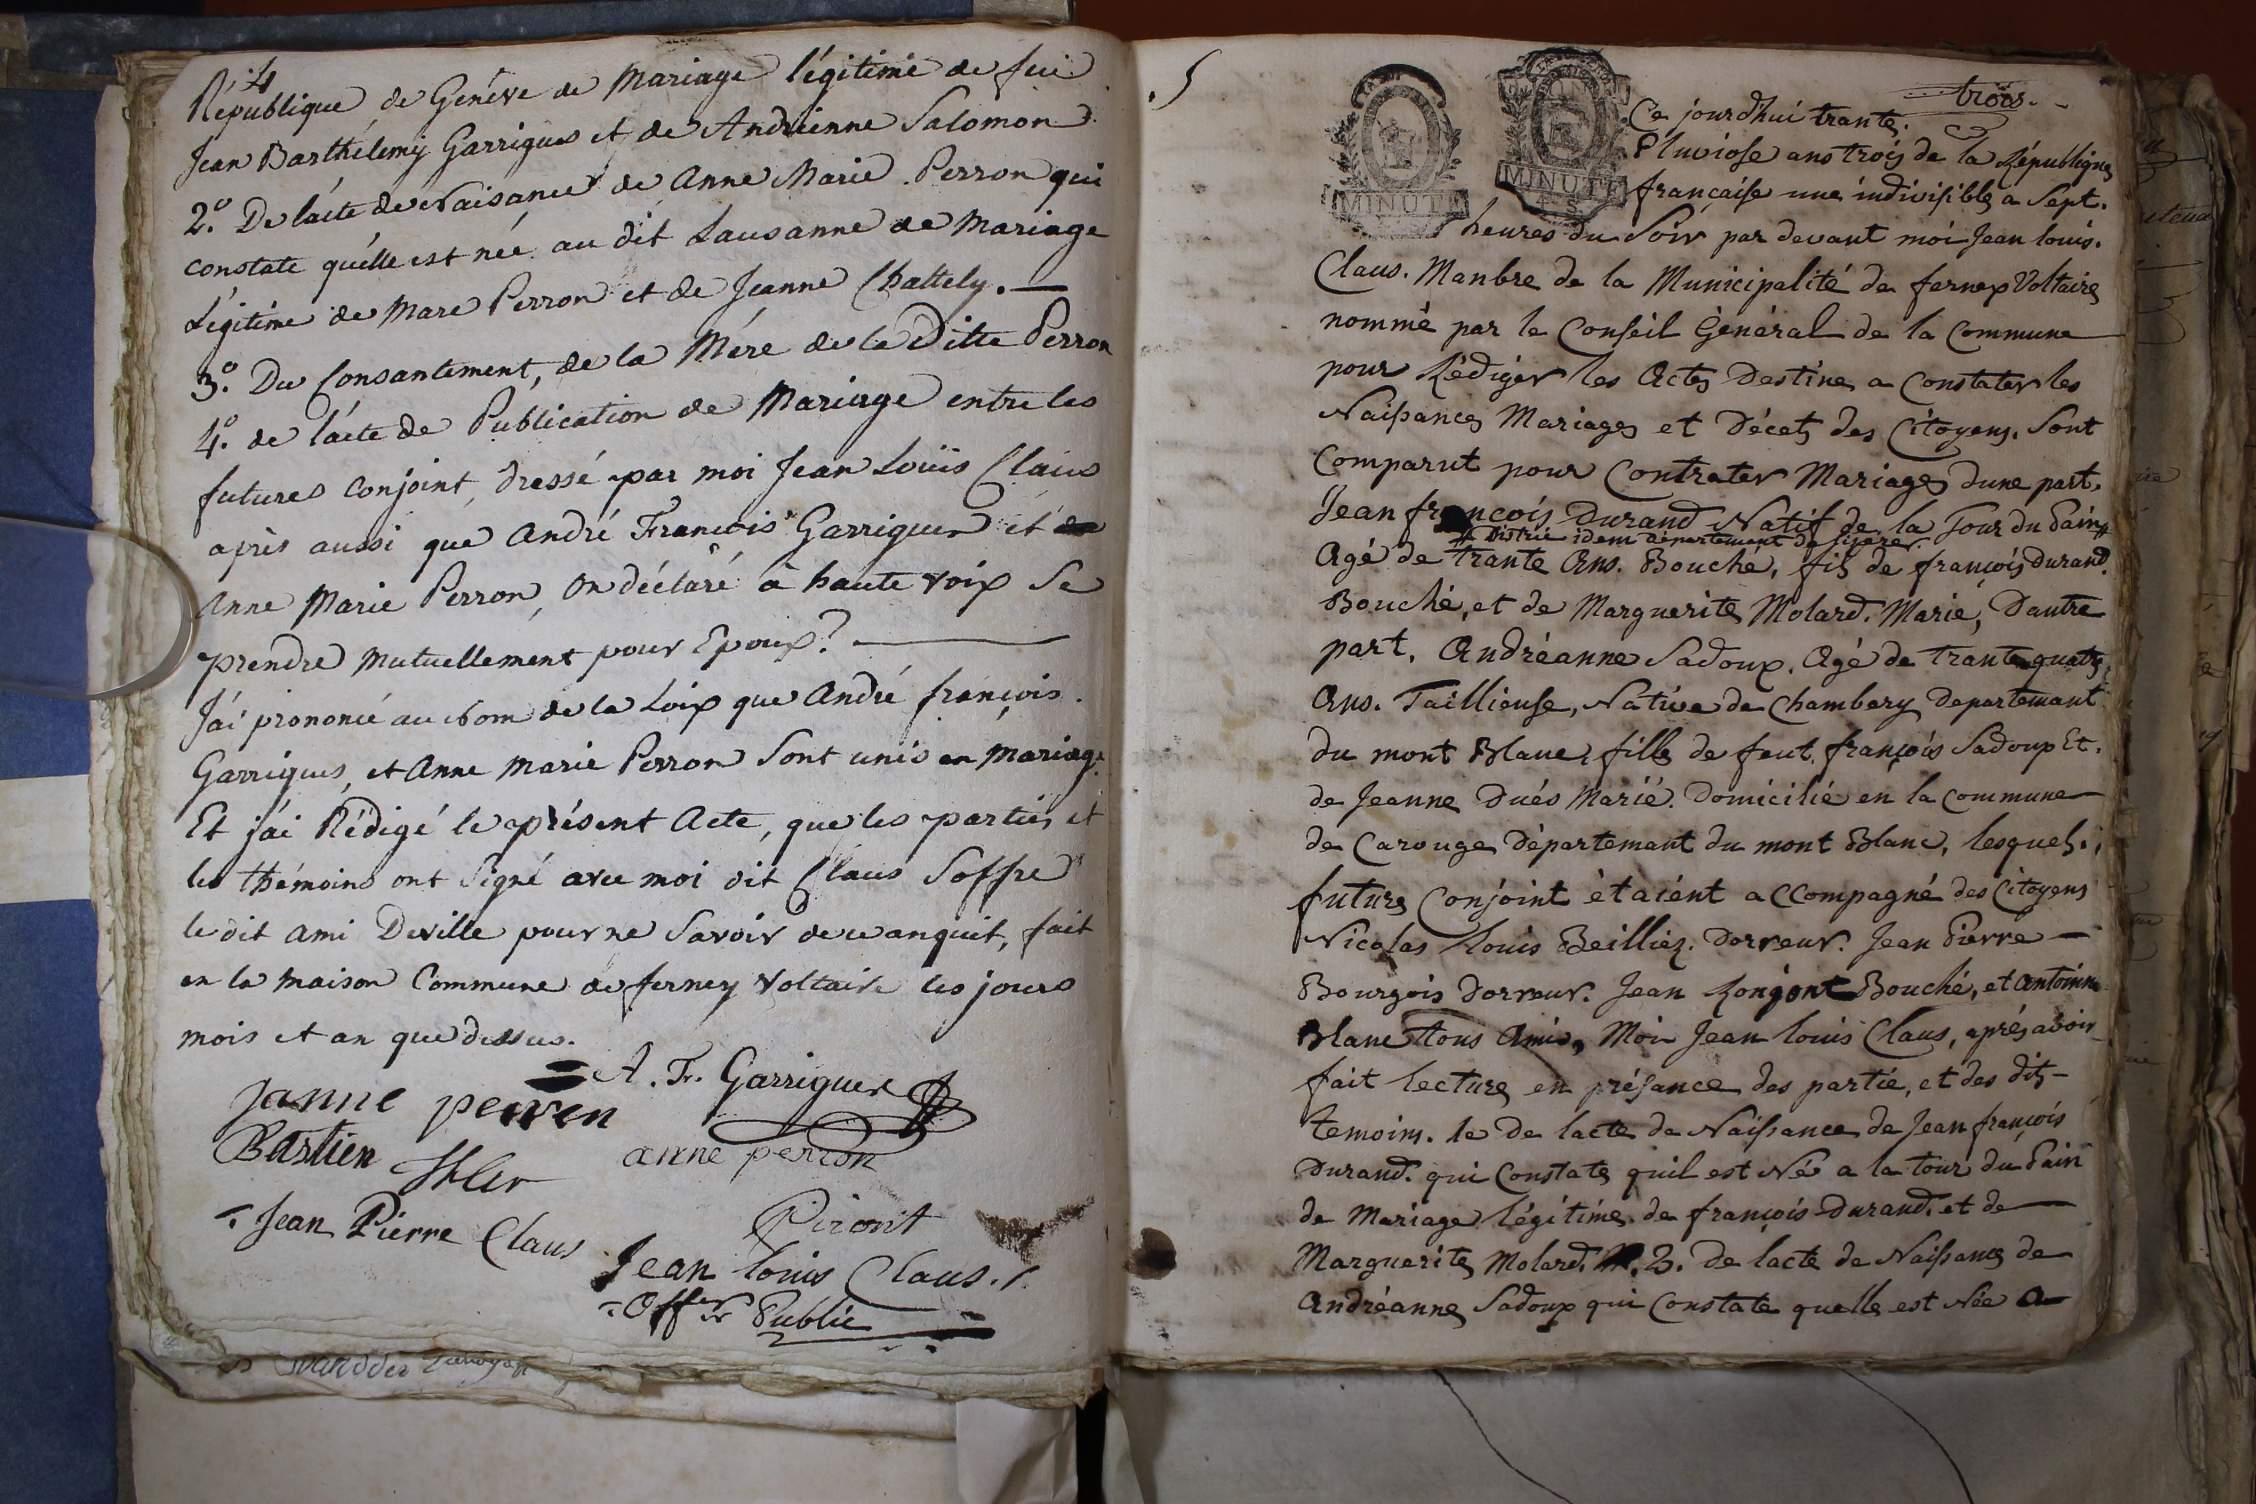 4
République de Genéve de Mariage légitime de feu
Jean Barthélemy Garrigues et de Andrienne Salomon
2.° De lácte de Naisance de Anne Marie Perron qui
constate quélle est née au dit Lausanne de Mariage
Légitime de Marc Perron et de Jeanne Chattely. —
3.° Du Consantement, de la Mére de la Ditte Perron
4.° de lácte de Publication de Mariage entre les
futures conjoint, dressé par moi Jean Louis Claus
après aussi que André François Garrigues et
Anne Marie Perron, On déclaré à haute voix Se
prendre Mutuellement pour Epoux? —
J'ái prononcé au Nom de la Loix que André françois
Garrigues, et Anne Marie Perron Sont unis en Mariage
Et j'ái Rédigé le présent Acte, que les parties et
les thémoins ont Signé avec moi dit Claus Soffre
le dit Ami Deville pour ne Savoir de ce anquit, fait
en la maison Commune de ferney Voltaire les jours
mois et an que dessus.
A. Fr. Garrigues
Janne perren
Bastien
anne perron
Piront
Jean Pierre Claus
Jean louis Claus.
Off.er Public
5
trois.
Ce jourdhui trante
Pluviose ans trois de la République
française une indivisible a Sept.
MINUTE
MINUTE
heures du Soir par devant moi Jean louis.
Claus. Manbre de la Municipalité de fernex Voltaire
nommé par le Conseil Général de la Commune
pour Rédiger les Actes Destine a Constater les
Naissances Mariages et Décets des Citoyens. Sont
Comparut pour Contrater Mariage dune part.
Jean françois Durand Natif de la Tour du Pain
# Distrie idem département de
Agé de trante Ans. Bouché, fils de françois Durand.
Bouché, et de Marguerite Molard. Marié, Dautre
part, Andréanne Sadoux. Agé de trante quatre
Ans. Taillieuse, Native de Chambery Departemant
du mont Blanc, fille de feut françois Sadoux Et.
de Jeanne Dués Marié. Domicilié en la Commune
de Carouge Départemant du mont Blanc, lesquels.
future Conjoint ètaiént accompagné des Citoyens
Nicolas louis Beilliez. Dorreur. Jean Pierre —
Bourgois Dorreur. Jean Rongont Bouché, et Antoine
Blanc tous Amis, Moi Jean louis Claus, aprés avoir
fait lecture en présance des partie, et des dits
temoins. le De lacte de Naissance de Jean françois
Durand. qui Constate quil est Né a la tour du Pain
de Mariage légitime de françois Durand. et de
Marguerite Molard. 2. De lacte de Naissance de
Andréanne Sadoux qui Constate quelle est Née a